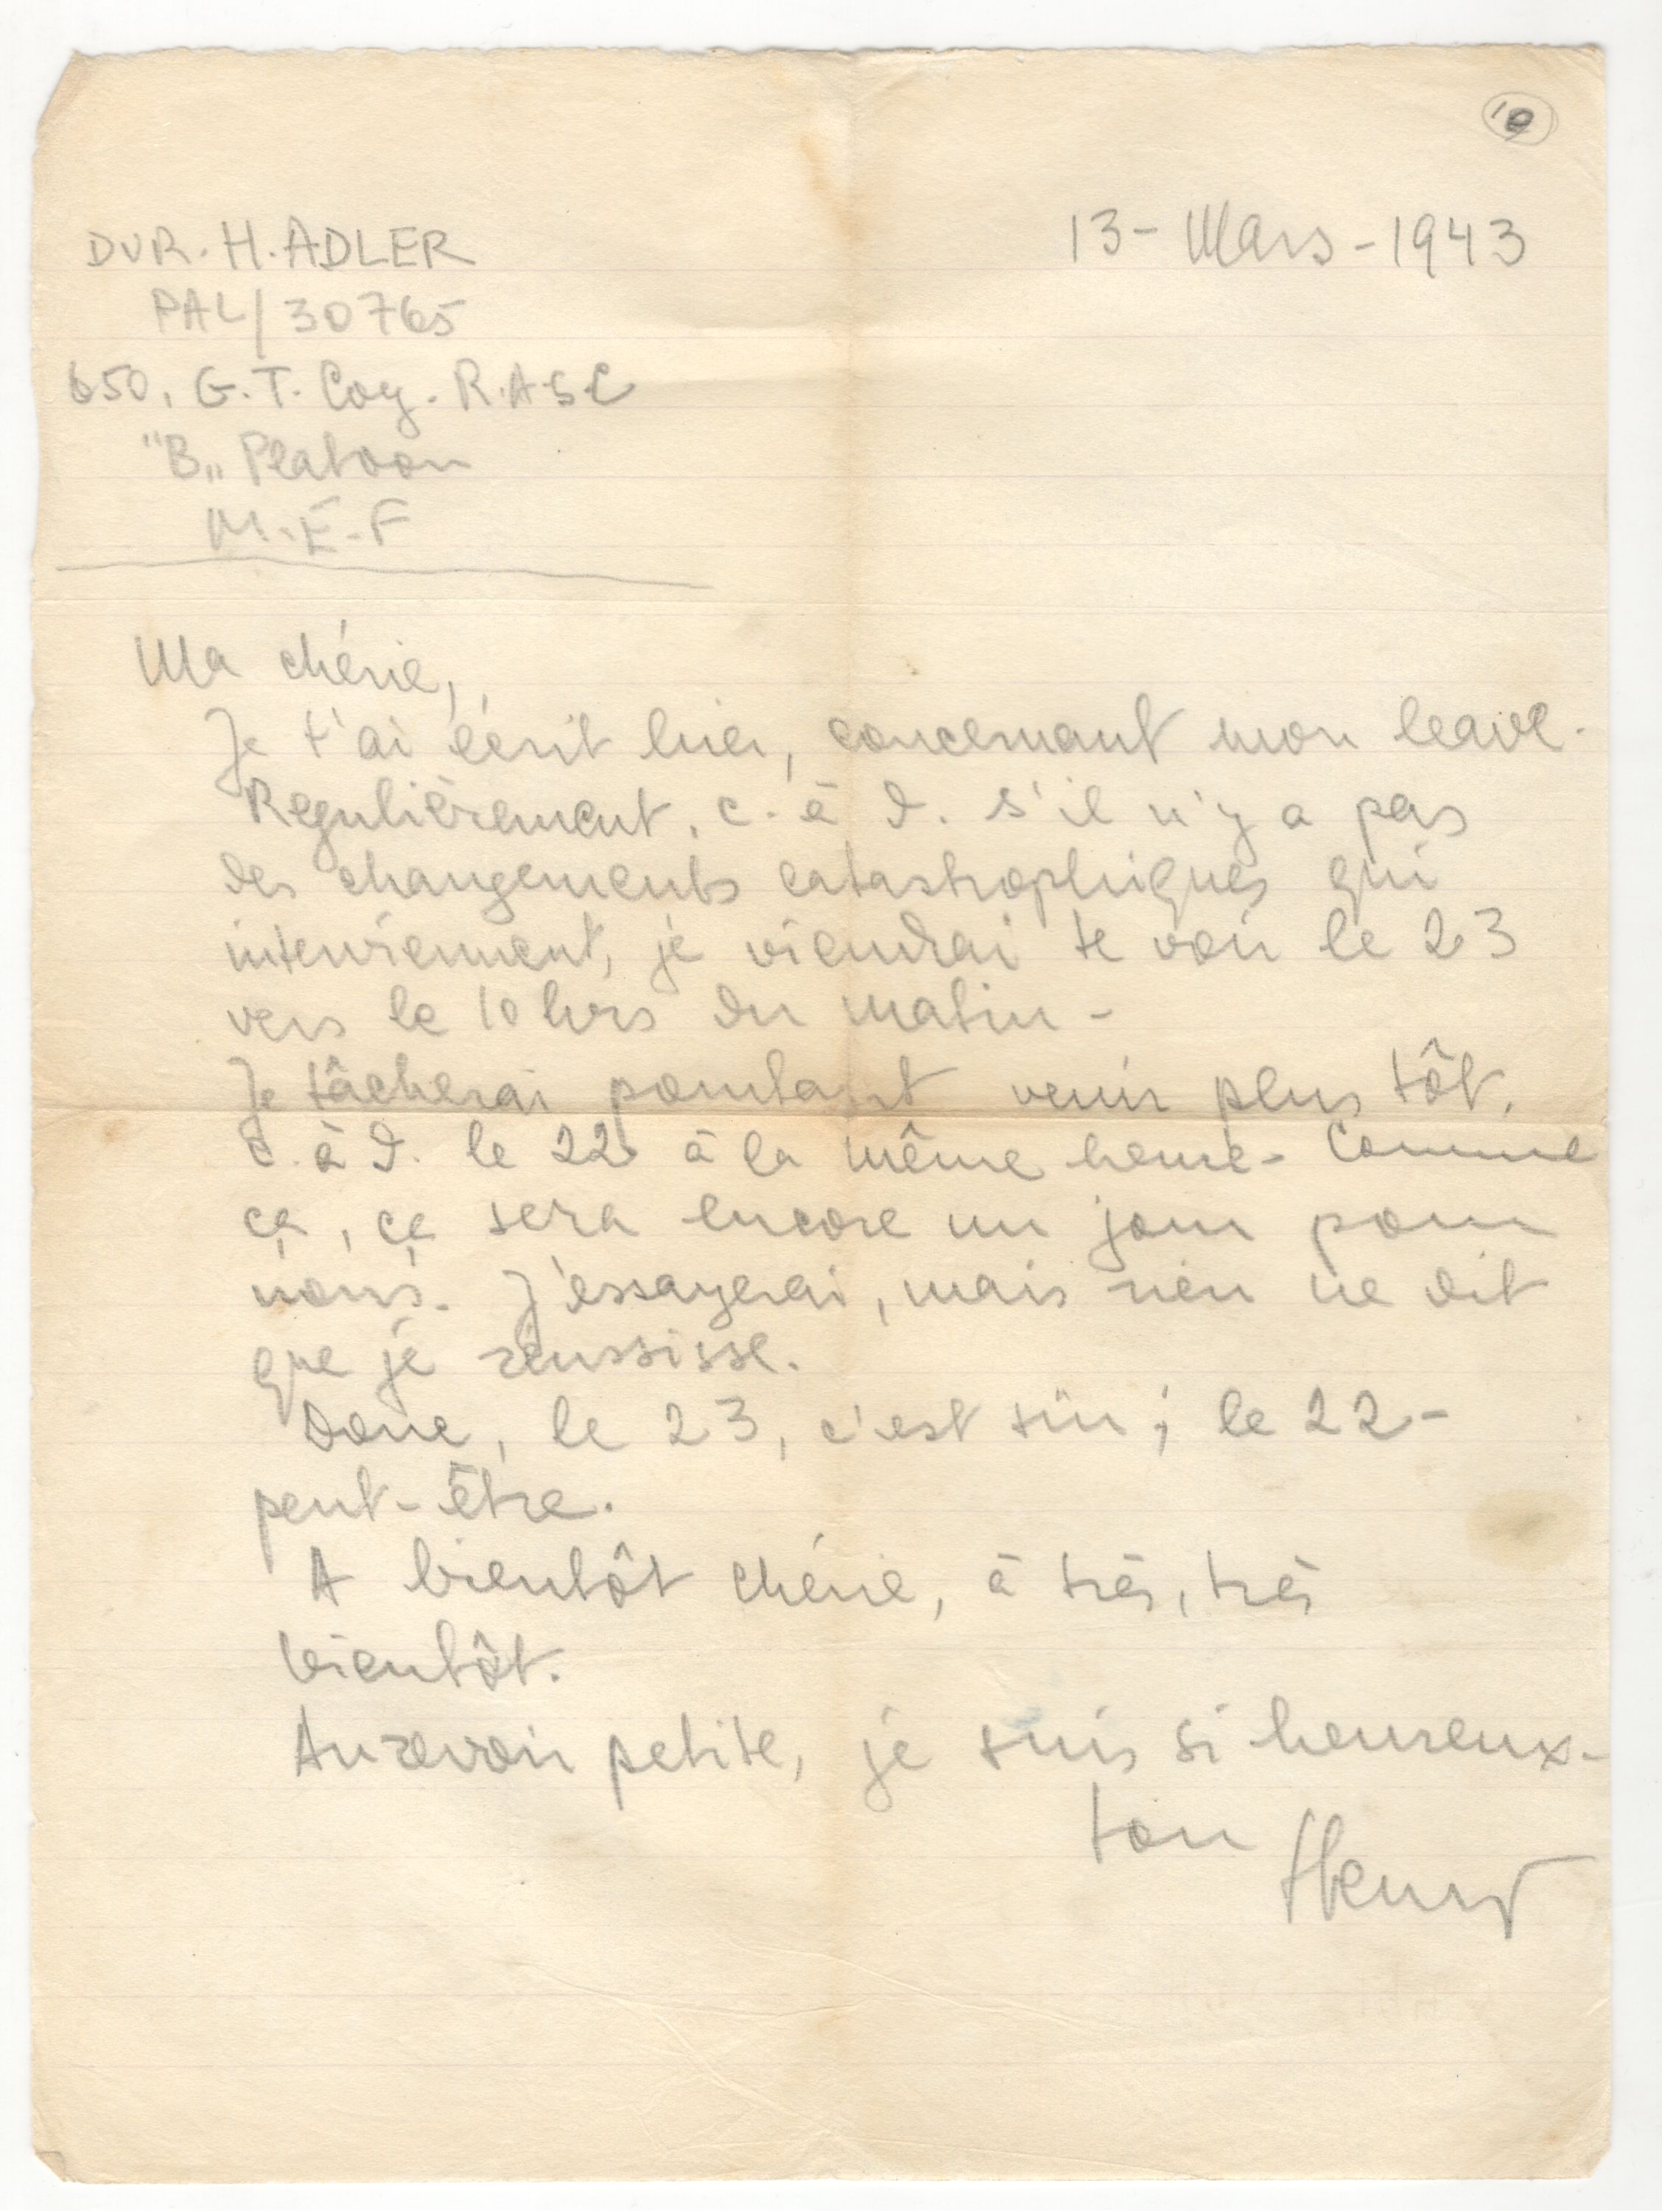 10
13 - Mars - 1943
DVR. H. ADLER
PAL/30765
650, G.T. Coy. R.A.S.C
"B„ Platoon
M.E.F
Ma chérie,
Je t'ai écrit hier, concernant mon leave.
Regulièrement, c. à d. s'il n'y a pas
des changements catastrophiques qui
interviennent, je viendrai te voir le 23
vers le 10 hrs du matin -
Je tâcherai pourtant venir plus tôt,
c. à d. le 22 à la même heure - Comme
ça, ça sera encore un jour pour
nous. J'essayerai, mais rien ne dit
que je réussisse.
Donc, le 23, c'est sûr ; le 22 -
peut-être.
A bientôt chérie, à très, très
bientôt.
Au revoir petite, je suis si heureux -
ton